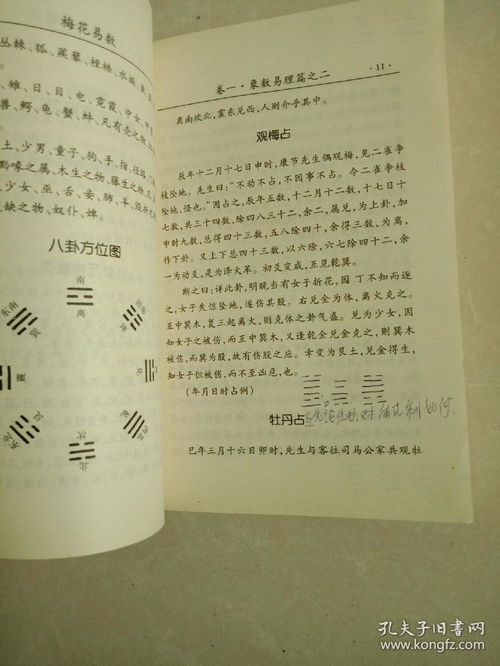 梅花易数
丛棘、狐、蒺藜、桎梏、水族、鱼、
、雉、日、目、电、霓霞、中女、甲
兽、鳄、龟、蟹、蚌、凡有壳之物、
、土、少男、童子、狗、手、指、径路、
黔喙之属、木生之物、藤生之物、
、少女、巫、舌、妾、肺、羊、毁折之
缺之物、奴仆、婢。
八卦方位图
南
离
东南
巽
震
艮
东北
坎
北
西北
卷一·象数易理篇之二
·11·
离南坎北,震东兑西,人则介乎其中。
观梅占
辰年十二月十七日申时,康节先生偶观梅,见二雀争
枝坠地。先生曰:“不动不占,不因事不占。今二雀争枝
坠地,怪也。”因占之,辰年五数,十二月十二数,十七日十
七数,共三十四数,除四八三十二,余二,属兑,为上卦,加
申时九数,总得四十三数,五八除四十,余得三数,为离,
作下卦。又上下总四十三数,以六除,六七除四十二,余
一为动爻,是为泽火革。初爻变咸,互见乾巽。
断之曰:详此卦,明晚当有女子折花,园丁不知而逐
之,女子失惊坠地,遂伤其股。右兑金为体,离火克之。
互中巽木,复三起离火,则克体之卦气盛。兑为少女,因
知女子之被伤,而互中巽木,又逢乾金兑金克之,则巽木
被伤,而巽为股,故有伤股之应。幸变为艮土,兑金得生,
知女子但被伤,而不至凶危,也。
(年月日时占例)
牡丹占
巳年三月十六日卯时,先生与客往司马公家共观牡
孔夫子旧书网
www.kongfz.com